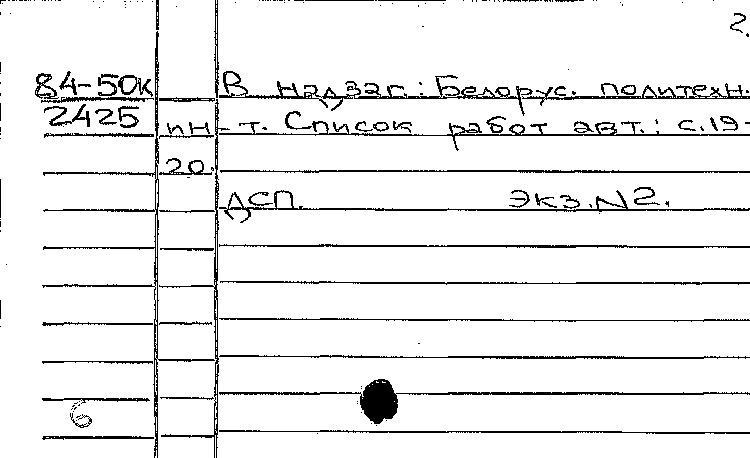 2.
84-50к В надзаг.: Белорус. политехн.
2425 ин-т. Список работ авт.: с.19-
20.
ДСП. Экз.N2.
6